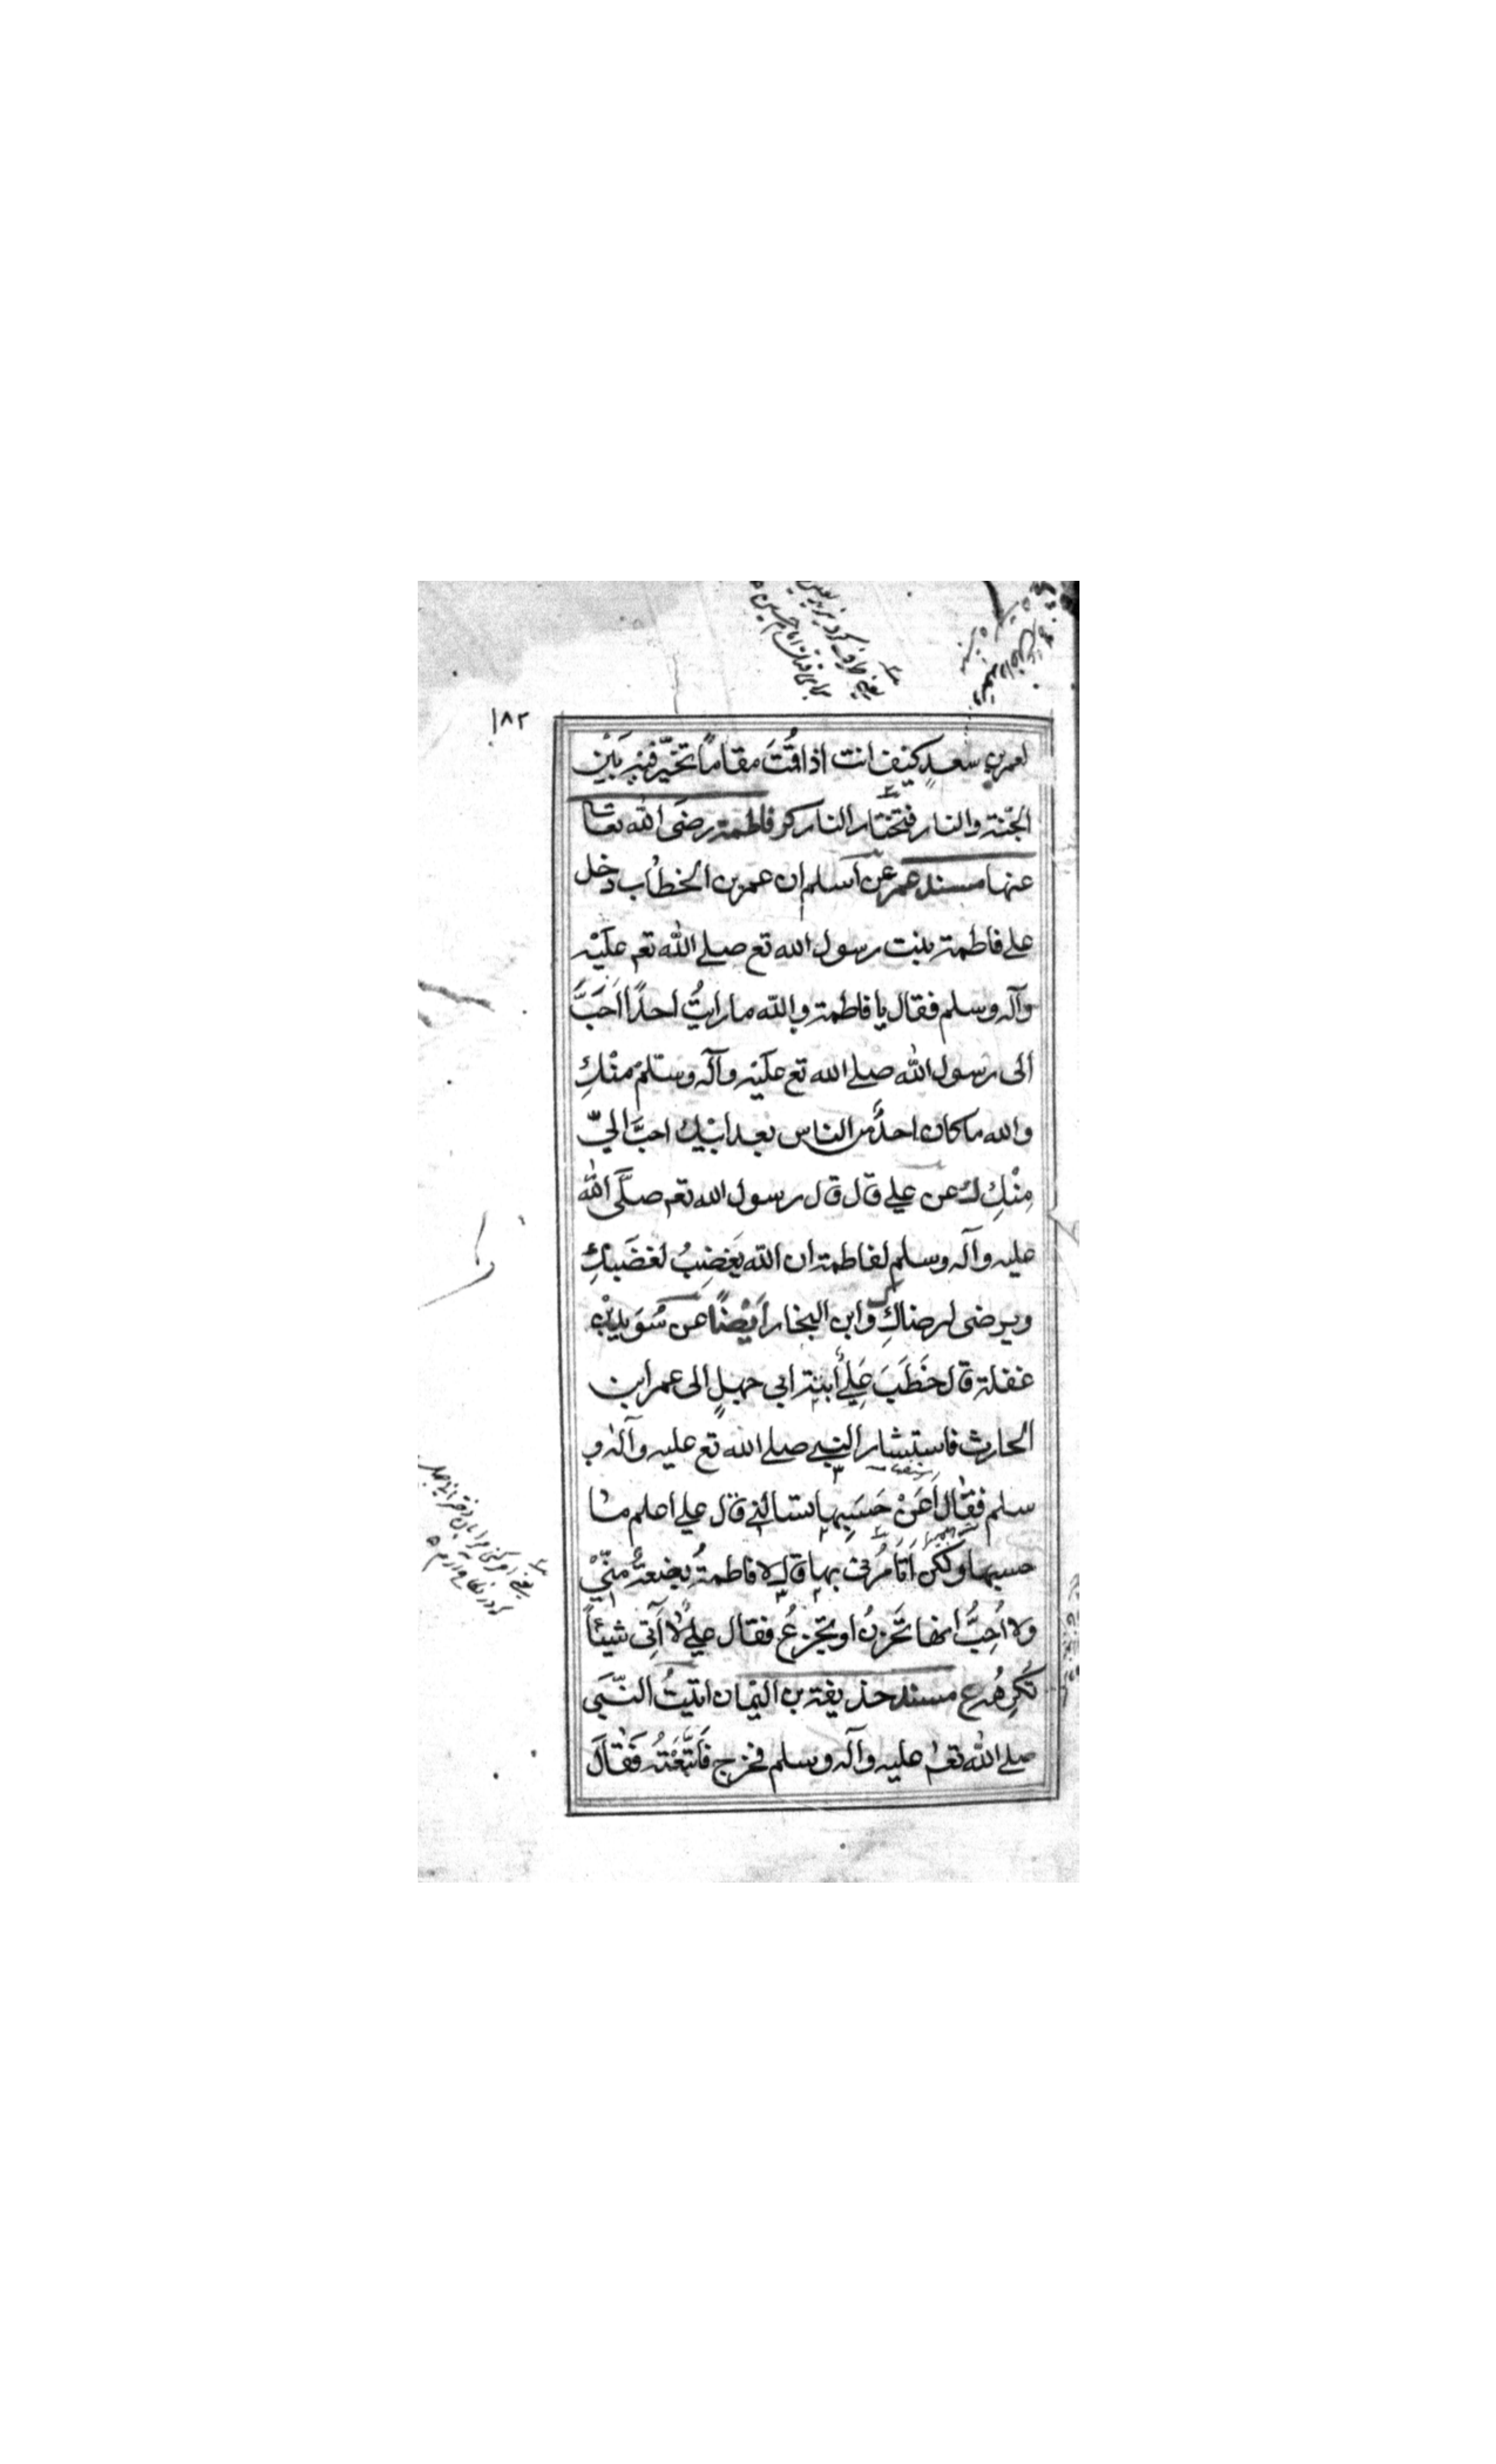 ۱۸۲
لعمر بن سعد كيف انت اذا قُمتَ مقامًا تخيّر فيه بَيْن
الجنّة والنار فتختار النار كر فاطمة رضَى الله تعا
عنها مسند عمر عن اسلم ان عمر بن الخطاب دخل
على فاطمة بنت رسول الله تع صلى الله تعم عَلَيْه
وآله وسلم فقال يا فاطمة والله ما رايتُ احدًا اَحَبَّ
الى رسول الله صلى الله تع عَلَيْه وآله وسلم منْكِ
والله ما كان احدٌ من الناس بعد ابيك احبَّ اليّ
مِنْكِ ك عن علي قال قال رسول الله تعم صلَّى الله
عليه وآله وسلم لفاطمة ان الله يَغضِبُ لغضَبكِ
ويرضى لرضاكِ وابن النجار اَيْضًا عن سُوَيْد بن
غفلة قال خَطَبَ عَلِيٌّ ابنة ابي جهلٍ الى عمر ابن
الحارث فاستشار النبي صلى الله تع عليه وآله و
سلم فقال اَعَنْ حَسَبِها تسالني قال علي اعلم ما
حسبها ولكن اَتَامُرني بها قال لا فاطمةُ بضعةٌ منّيْ
ولا اُحِبُّ انها تَحَزنُ او تجزعُ فقال عليٌّ لا آتى شيئاً
تكرِهُه ع مسند حذيفة بن اليمان اتيتُ النّبَي
صلى الله تعم عليه وآله وسلم فخرج فَاتّبَعْتُه فَقالَ